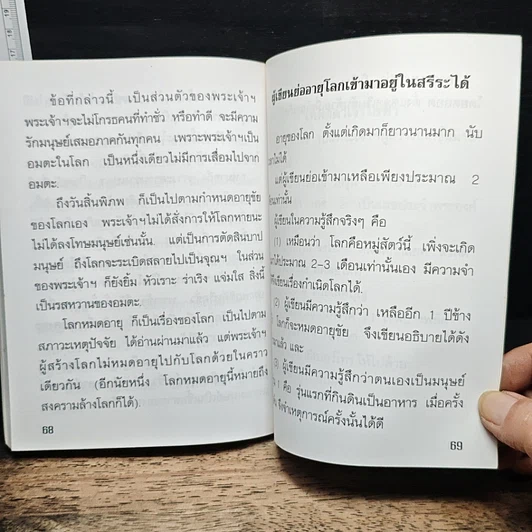 ข้อที่กล่าวนี้ เป็นส่วนตัวของพระเจ้าฯ
พระเจ้าฯจะไม่โกรธคนที่ทำชั่ว หรือทำดี จะมีความ
รักมนุษย์เสมอภาคกันทุกคน เพราะพระเจ้าฯเป็น
อมตะในโลก เป็นหนึ่งเดียวไม่มีการเสื่อมไปจาก
อมตะ
ถึงวันสิ้นพิภพ ก็เป็นไปตามกำหนดอายุขัย
ของโลกเอง พระเจ้าฯไม่ได้สั่งการให้โลกหายนะ
ไม่ได้ลงโทษมนุษย์เช่นนั้น แต่เป็นการตัดสินบาป
มนุษย์ ถึงโลกจะระเบิดสลายไปเป็นจุณฯ ในส่วน
ของพระเจ้าฯ ก็ยังยิ้ม หัวเราะ ร่าเริง แจ่มใส สิ่งนี้
เป็นรสหวานของอมตะ
โลกหมดอายุ ก็เป็นเรื่องของโลก เป็นไปตาม
สภาวะเหตุปัจจัย ได้อ่านผ่านมาแล้ว แต่พระเจ้าฯ
ผู้สร้างโลกไม่หมดอายุไปกับโลกด้วยในคราว
เดียวกัน (อีกนัยหนึ่ง โลกหมดอายุนี้หมายถึง
สงครามล้างโลกก็ได้)
68
ผู้เขียนย่ออายุโลกเข้ามาอยู่ในสรีระได้
อายุของโลก ตั้งแต่เกิดมาก็ยาวนานมาก นับ
ไม่ได้
แต่ผู้เขียนย่อเข้ามาเหลือเพียงประมาณ 2
เท่านั้น
ผู้เขียนในความรู้สึกจริงๆ คือ
(1) เหมือนว่า โลกคือหมู่สัตว์นี้ เพิ่งจะเกิด
ได้ประมาณ 2-3 เดือนเท่านั้นเอง มีความจำ
เรื่องกำเนิดโลกได้
(2) ผู้เขียนมีความรู้สึกว่า เหลืออีก 1 ปีข้าง
โลกก็จะหมดอายุขัย จึงเขียนอธิบายได้ดัง
มาแล้ว และ
(3) ผู้เขียนมีความรู้สึกว่าตนเองเป็นมนุษย์
1 คือ รุ่นแรกที่กินดินเป็นอาหาร เมื่อครั้ง
จึงจำเหตุการณ์ครั้งนั้นได้ดี
69